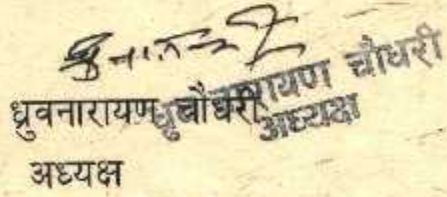 ध्रुवनारायण चौधरी
अध्यक्ष
ध्रुवनारायण चौधरी
अध्यक्ष